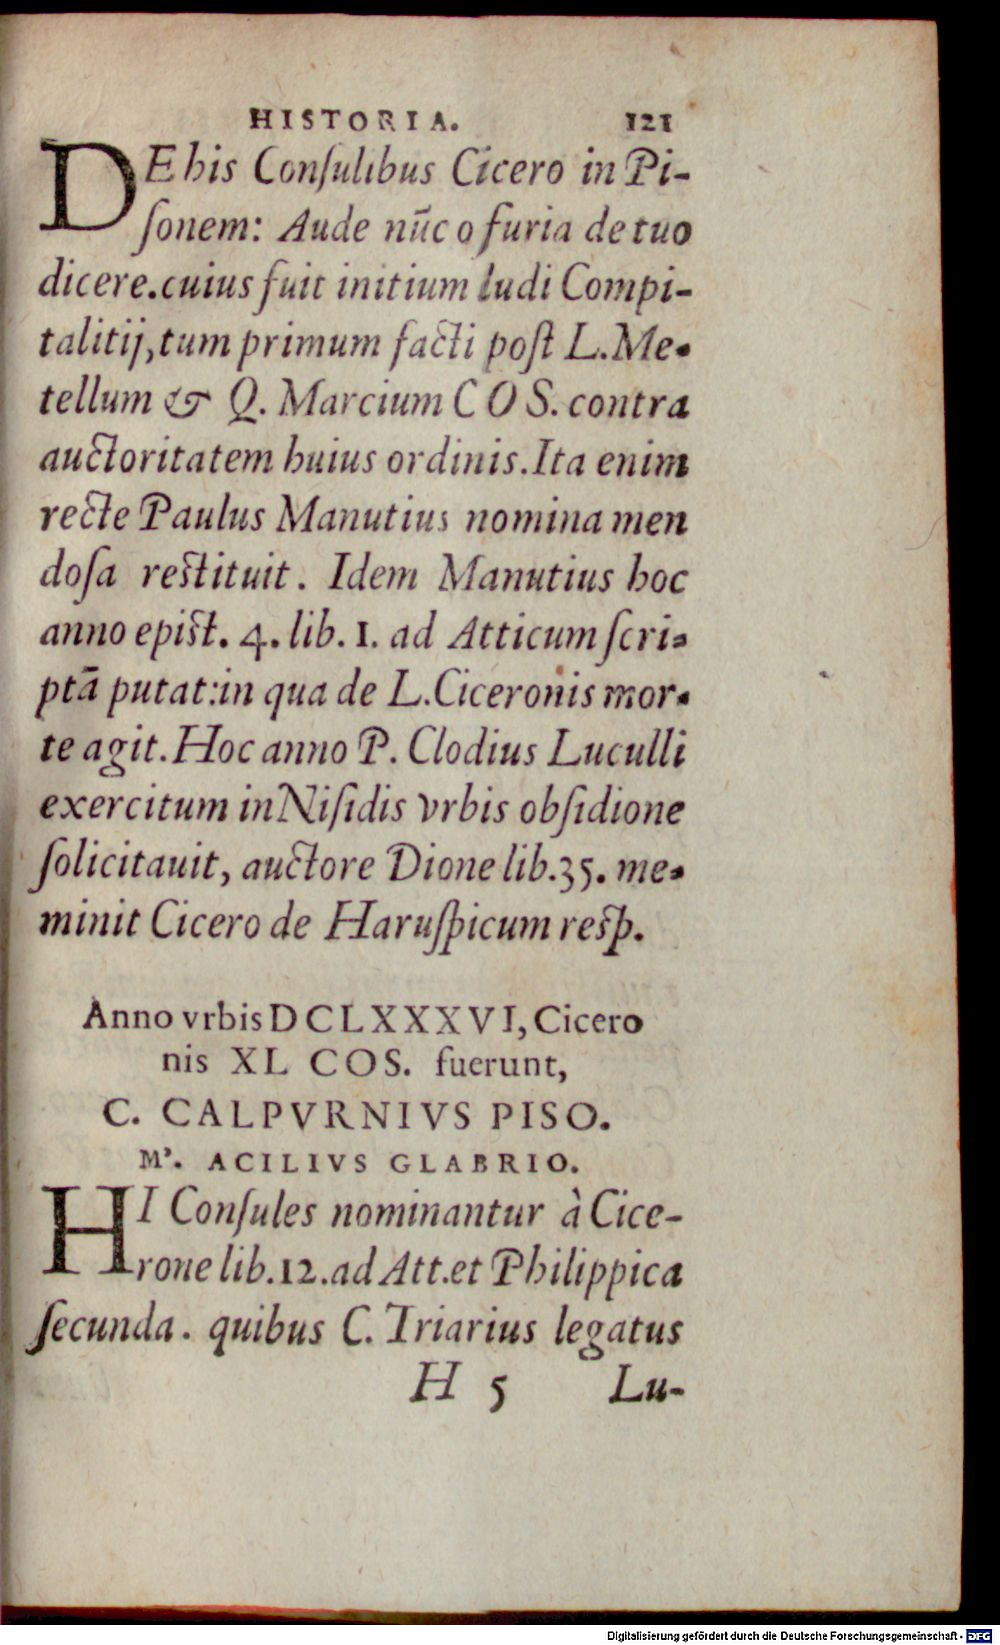 HISTORIA. 121
DE his Conſulibus Cicero in Pi-
ſonem: Aude nūc o furia de tuo
dicere. cuius fuit initium ludi Compi-
talitij, tum primum facti poſt L. Me-
tellum & Q. Marcium COS. contra
auctoritatem huius ordinis. Ita enim
recte Paulus Manutius nomina men
doſa restituit. Idem Manutius hoc
anno epist. 4. lib. 1. ad Atticum ſcri-
ptā putat: in qua de L. Ciceronis mor-
te agit. Hoc anno P. Clodius Luculli
exercitum in Niſidis vrbis obſidione
ſolicitauit, auctore Dione lib. 35. me-
minit Cicero de Haruſpicum resp.
Anno vrbis DCLXXXVI, Cicero
nis XL COS. fuerunt,
C. CALPVRNIVS PISO.
M'. ACILIVS GLABRIO.
HI Conſules nominantur à Cice-
rone lib. 12. ad Att. et Philippica
ſecunda. quibus C. Triarius legatus
H 5 Lu-
Digitalisierung gefördert durch die Deutsche Forschungsgemeinschaft - DFG